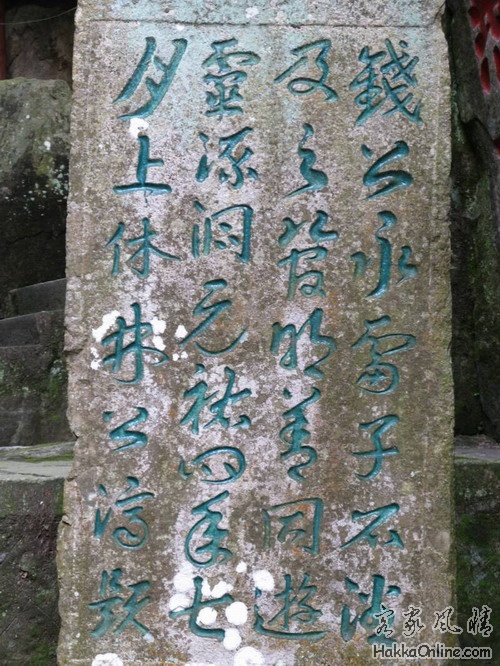 錢公永雷子石沙
及之管明善同遊
靈源洞元祐四年七
月上休林公濟題
客家風情
HakkaOnline.com